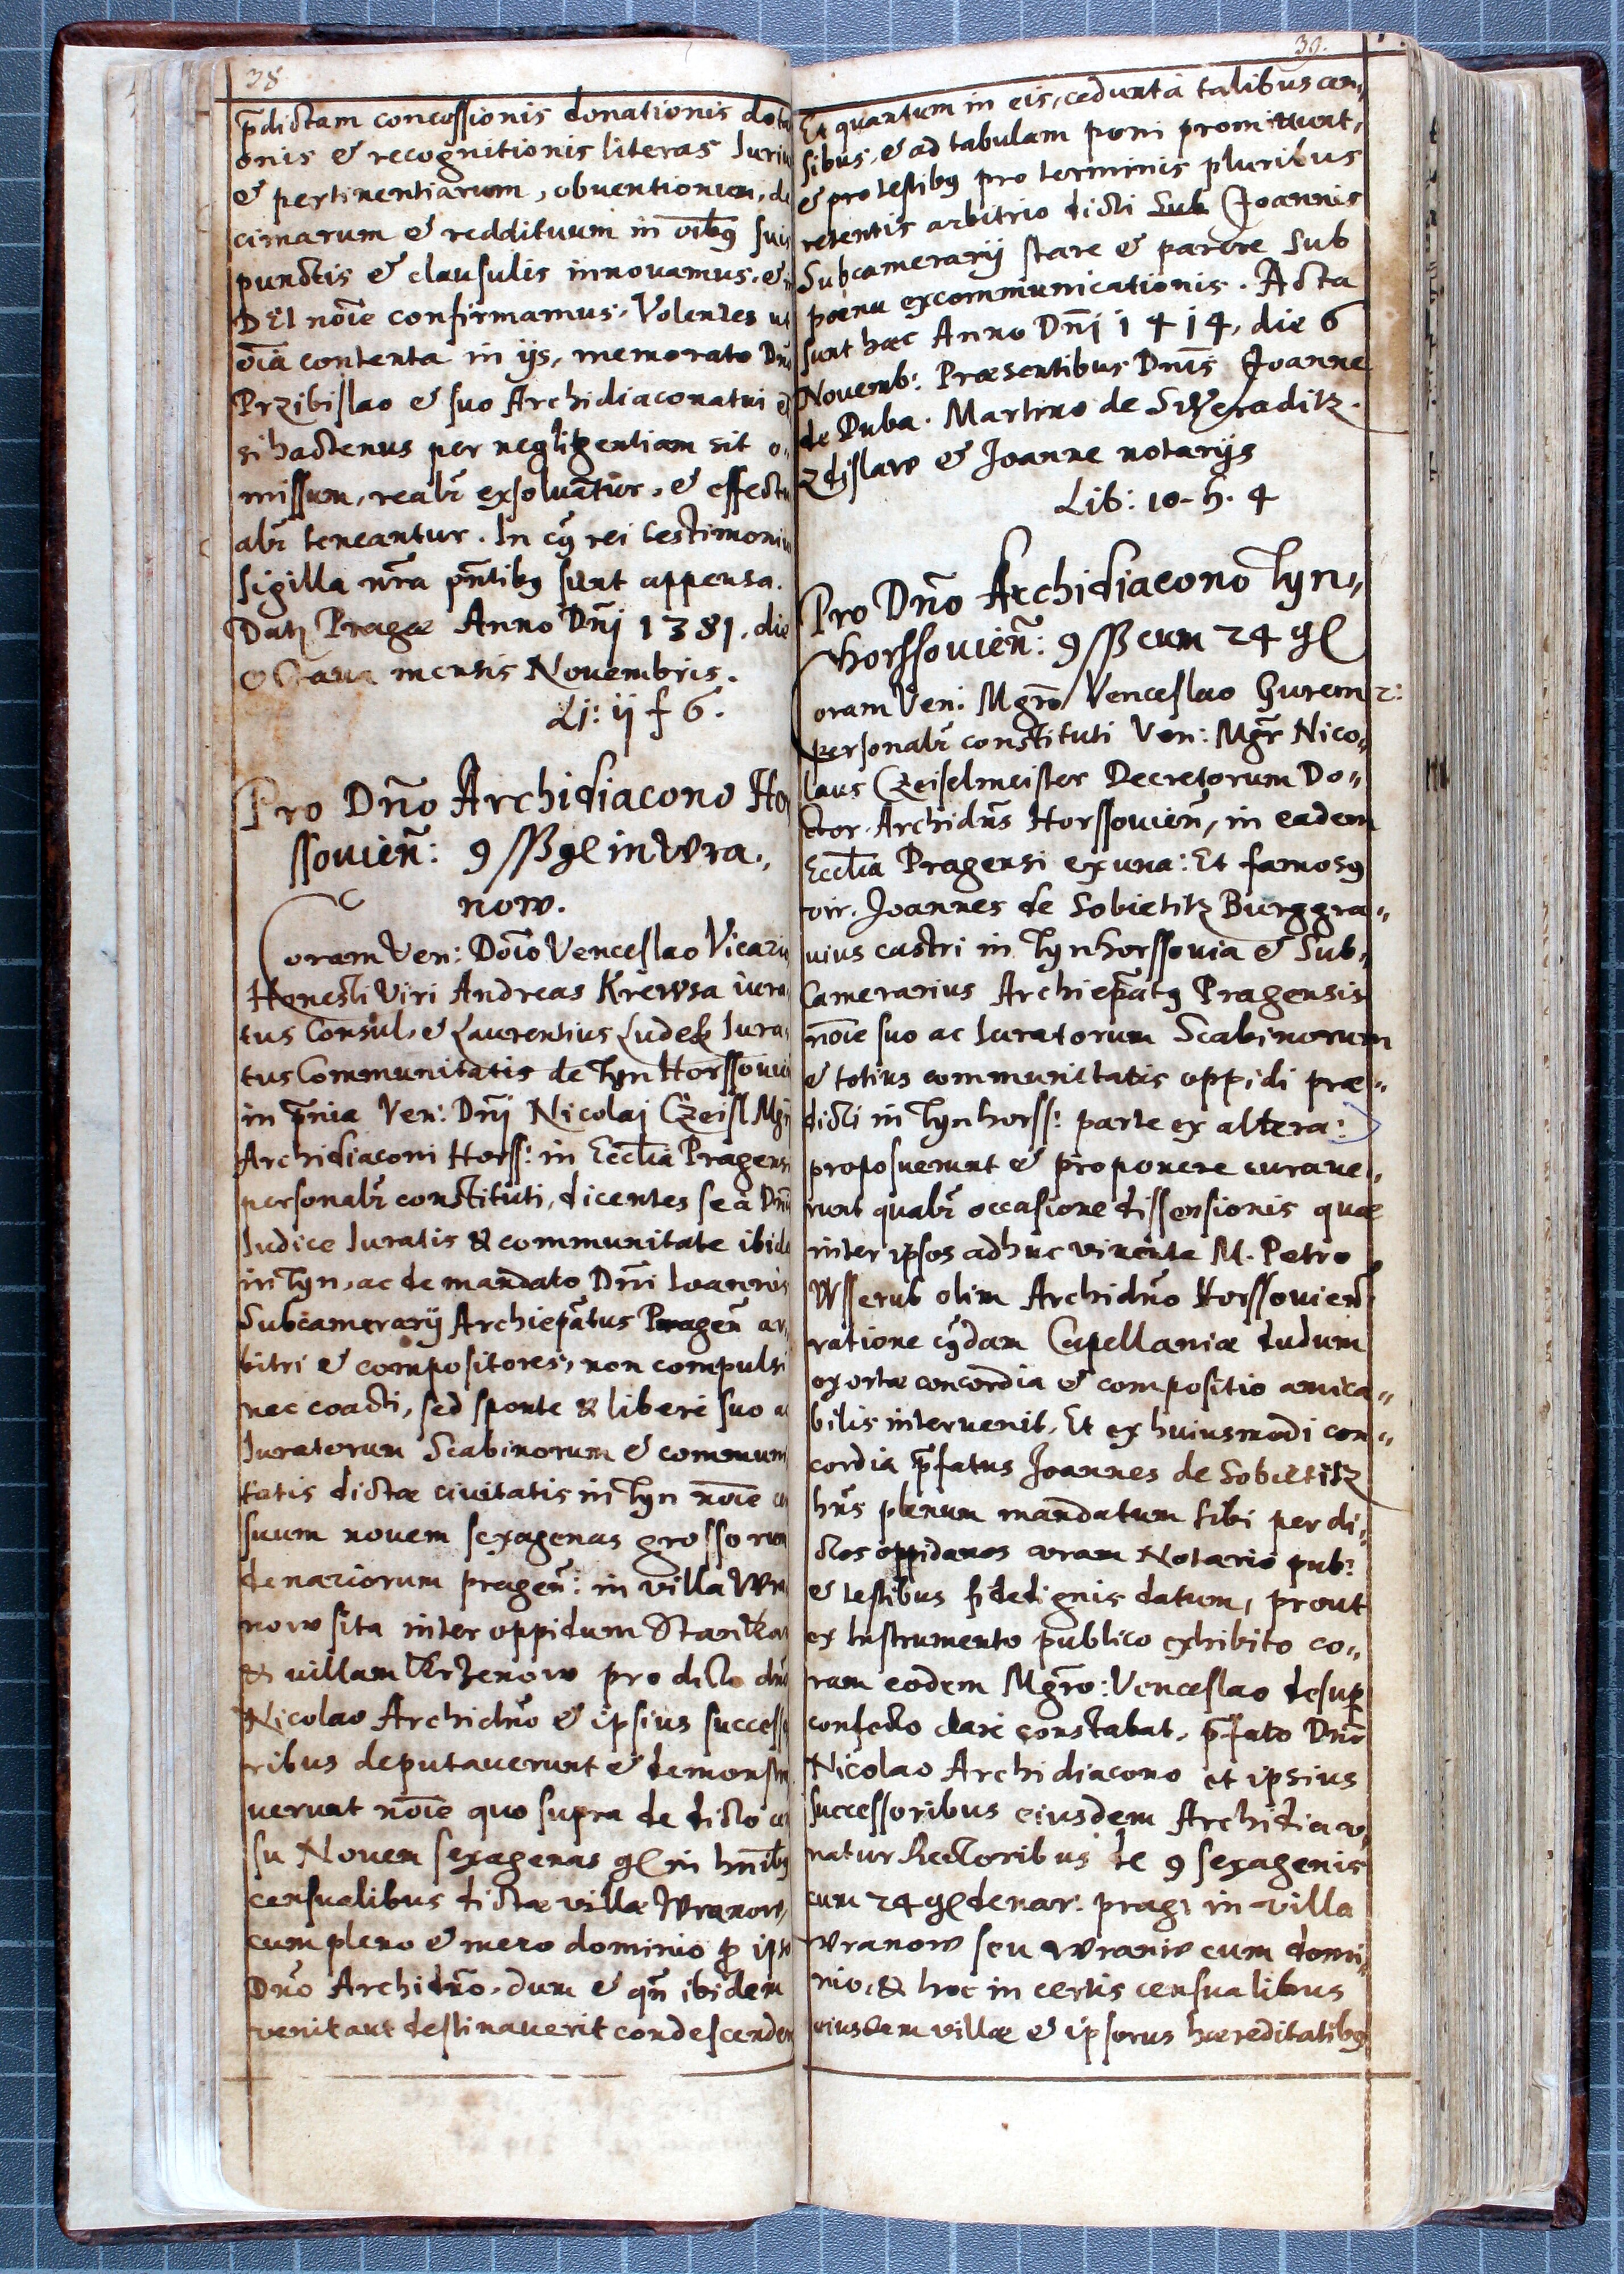 38
p̄dictam concessionis donationis dota
onis & recognitionis literas Iuriu
& pertinentiarum, obuentionum, de
cimarum & reddituum in oībꝰ suis
punctis & clausulis innouamus, &
DEI noīe confirmamus, Volentes ut
oīa contenta in ijs, memorato Dn̄o
Przibislao & suo Archidiaconatui et
si hactenus per negligentiam sit o„
missum, realr̄ exsoluāntur, & effectu
alr̄ teneantur. In cꝰ rei testimoniu
sigilla nr̄a pn̄tibꝰ sunt appensa.
Datꝫ Pragæ Anno Dn̄j 1381, die
Octaua mensis Nouembris.
Lj: ij f 6.
Pro Dn̄o Archidiacono Ho
ssouien̄: 9 ßß gl in Wra„
now.
Coram Ven: Dōio Venceslao Vicario
Honesti Viri Andreas Krewsa iura
tus Consul, & Laurentius Ludek Iura
tus Communitatis de Tyn Horssouie
in p̄nia Ven: Dn̄j Nicolaj Czeisl Mgr
Archidiaconi Horss: in Eccl̄ia Pragensi
personalr̄ constituti, dicentes se à Dn̄i
Iudice Iuratis & communitate ibide
in Tyn, ac de mandato Dn̄i Ioannis
Subcamerarij Archiep̄atus Pragen̄ ar„
bitri & compositores, non compulsi
nec coacti, sed sponte & liberè suo ac
Iuratorum Scabinorum & communi
tatis dictæ ciuitatis in Tyn noīe cen
suum nouem sexagenas grossorum
denariorum pragen̄: in villa Wra
now sita inter oppidum Stankau
& villam Krzenow pro dicto dn̄o
Nicolao Archidn̄o & ipsius successo
ribus deputauerunt & demonstra
uerunt noīe quo supra de dicto cen
su Nouem sexagenas gl in hn̄ibꝰ
censualibus dictæ villæ Wranow,
cum pleno & mero dominio ꝑ ipso
Dn̄o Archidn̄o, dum & qn̄ ibidem
venit aut destinauerit condescenden
39.
Et quantum in eis, cedunt à talibus cen„
sibus, & ad tabulam poni promittunt,
& pro testibꝰ pro terminis pluribus
retentis arbitrio dicti Sub Joannis
Subcamerarij stare & parere sub
poena excommunicationis. Acta
sunt hæc Anno Dn̄j 1414, die 6
Nouemb: Præsentibus Dn̄is Joanne
de Duba. Martino de Siweraditz.
Zdislaw & Joanne notarijs
Lib: 10. h. 4
Pro Dn̄o Archidiacono Tyn„
horssouien̄: 9 ßß cum 24 gl
Coram Ven: Mgrō Venceslao Gurem z:
personalr̄ constituti Ven: Mgr̄ Nico„
laus Czeiselmeister Decretorum Do„
ctor. Archidn̄s Horssouien̄, in eadem
Eccl̄ia Pragensi ex una: Et famosꝰ
vir. Joannes de Sobietitz Burggra„
uius castri in Tynhorssouia & Sub„
Camerarius Archiep̄atꝰ Pragensis
noīe suo ac Iuratorum Scabinorum
& totius communitatis oppidi præ„
dicti in Tynhorss: parte ex altera:
proposuerunt & proponere curaue„
runt qualr̄ occasione dissensionis quæ
inter ipsos adhuc viuente M. Petro
Wsserub olim Archidn̄o Horssouien̄
ratione cꝰdam Capellaniæ dudum
exortæ concordia & compositio amica„
bilis interuenit, Et ex huiusmodi con„
cordia p̄fatus Joannes de Sobietitz
hn̄s plenum mandatum sibi per di„
ctos oppidanos coram Notario pub:
& testibus fidedignis datum, prout
ex Instrumento publico exhibito co„
ram eodem Mgrō: Venceslao desuꝑ
confecto clarè constabat, p̄fato Dn̄o
Nicolao Archidiacono et ipsius
successoribus eiusdem Archidiaco„
natus Rectoribus de 9 sexagenis
cum 24 gl denar: prag: in villa
Wranow seu Wraniw cum domi„
nio, & hoc in certis censualibus
eiusdem villæ & ipsorus hæreditatibꝰ